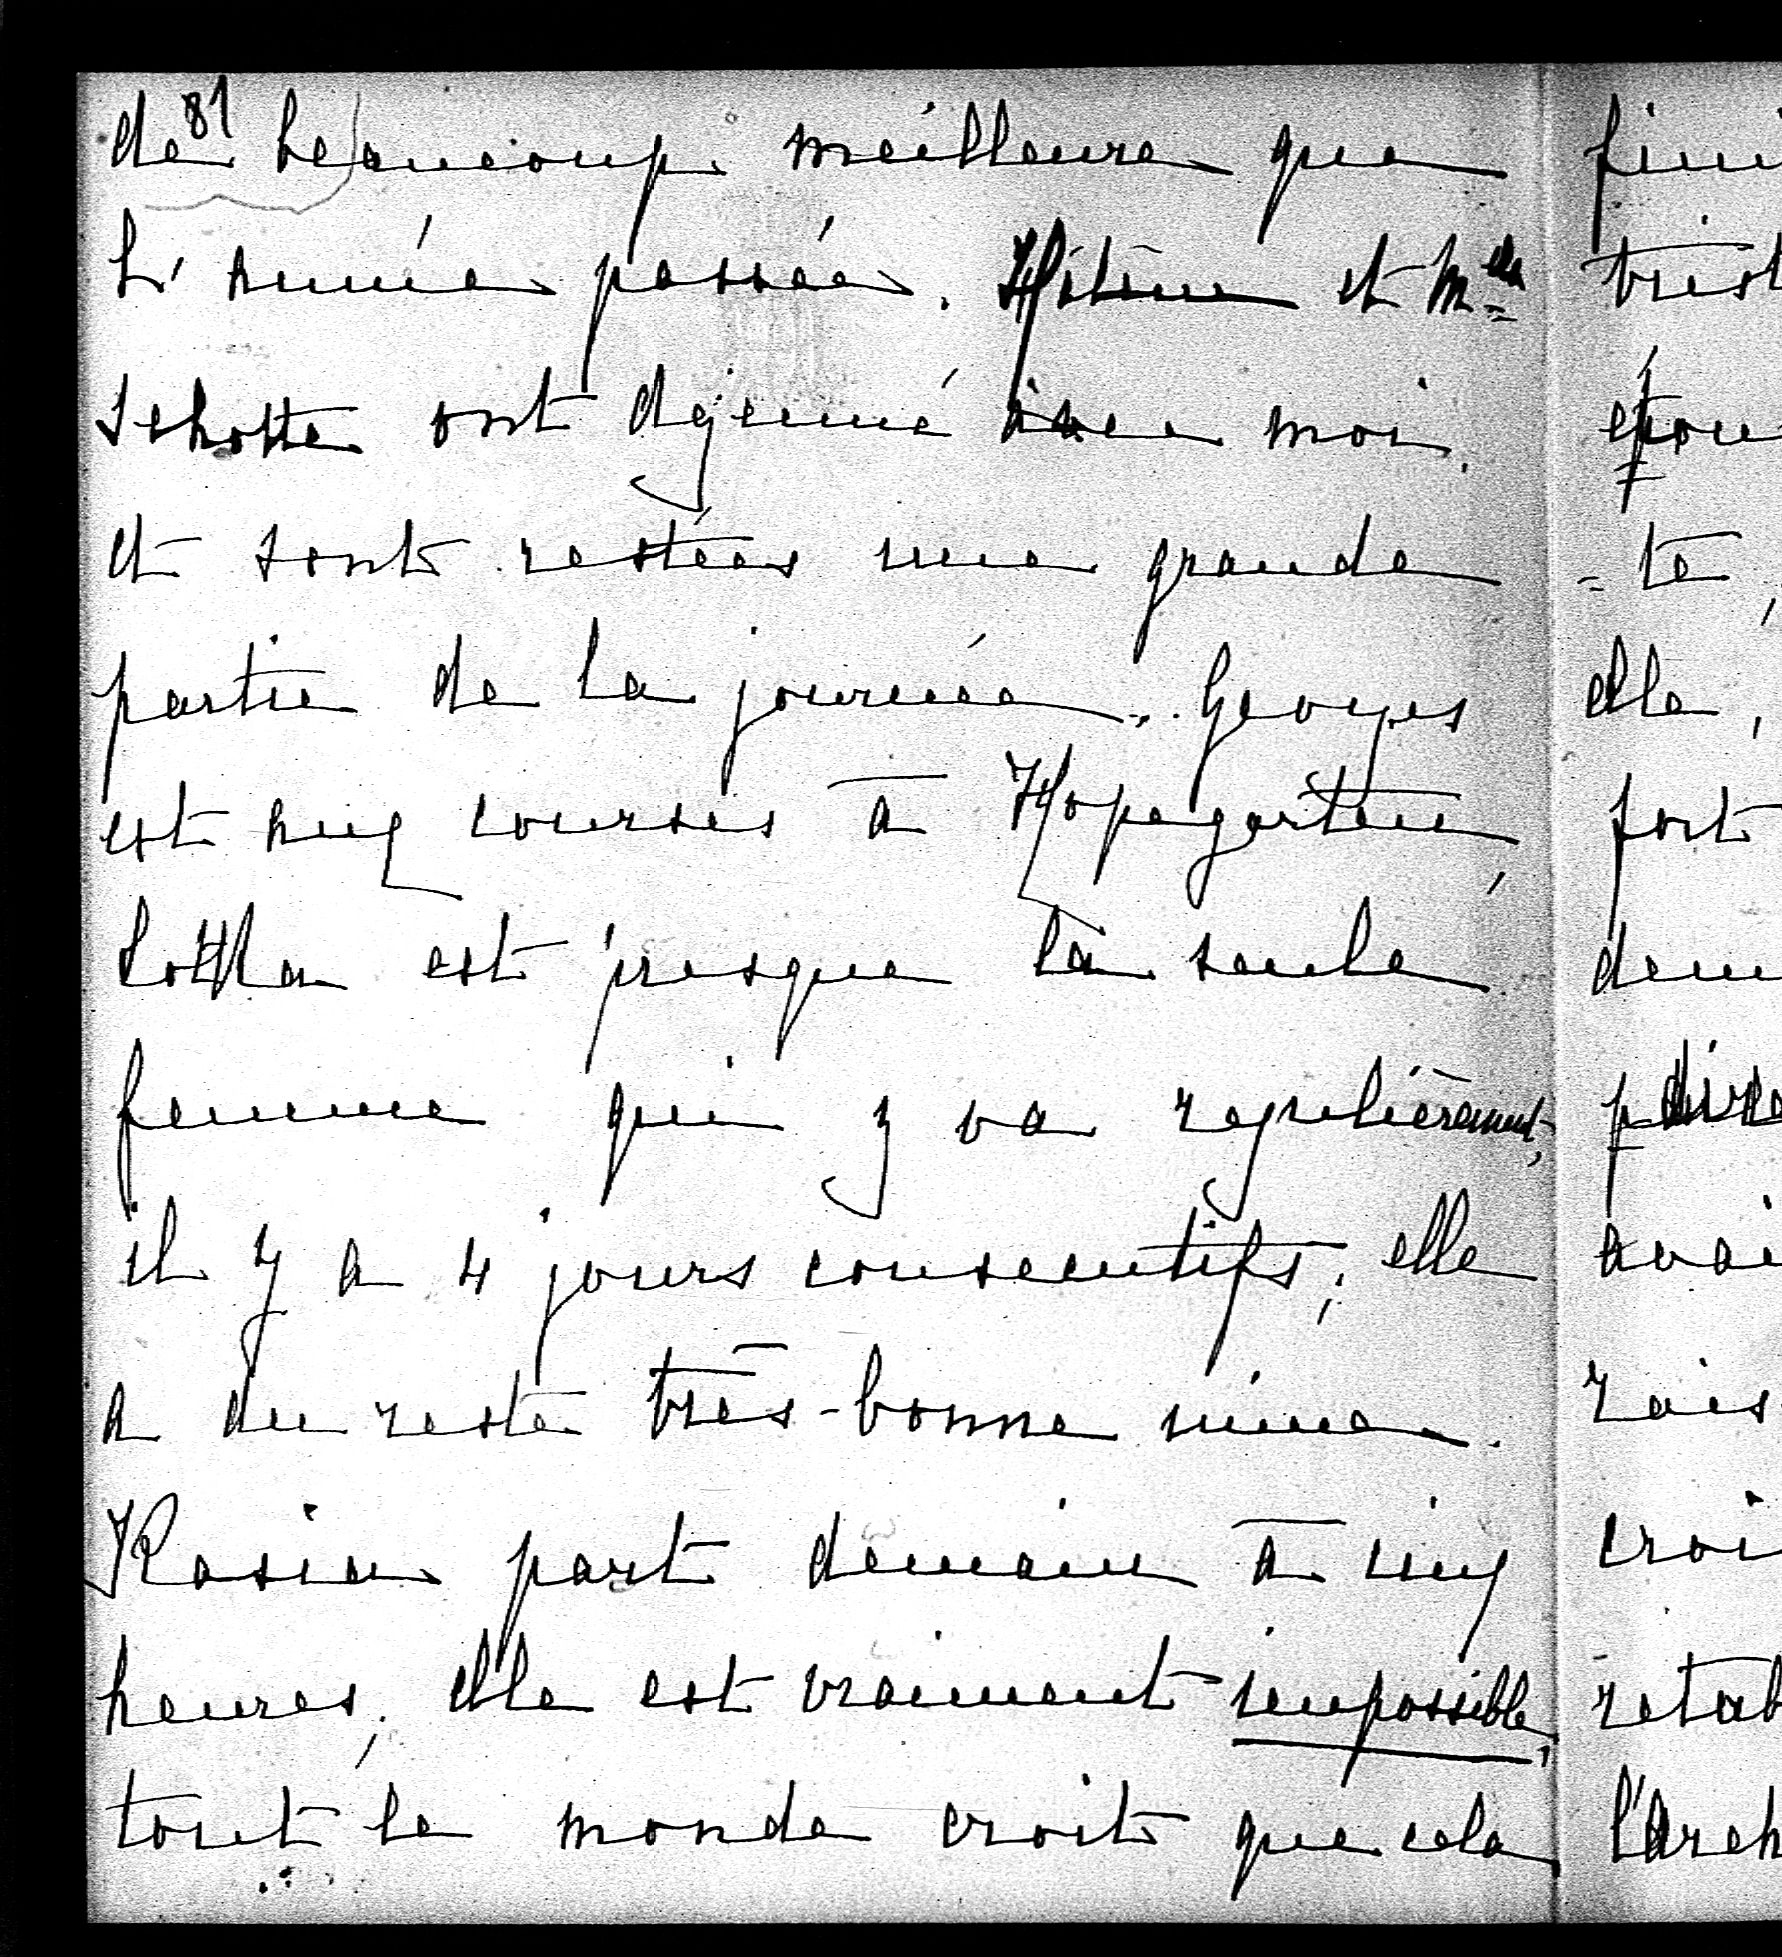 81
de beaucoup meilleure que
L'année passée. Hélène et Mlle
Schotte ont dejeuné avec moi
et sont restées une grande
partie de la journée. Georges
est aux courses à Hopegarten,
Lotka est presque la seule
femme qui y va regulièrement,
il y a 4 jours consecutifs; elle
a du reste très-bonne mine.
Kasia part demain à cinq
heures, elle est vraiment impossible,
tout le monde croit que cela
fini
trist
epou
- té,
elle,
fort
dem
dire
avai
rais
croi
retab
l'Arch